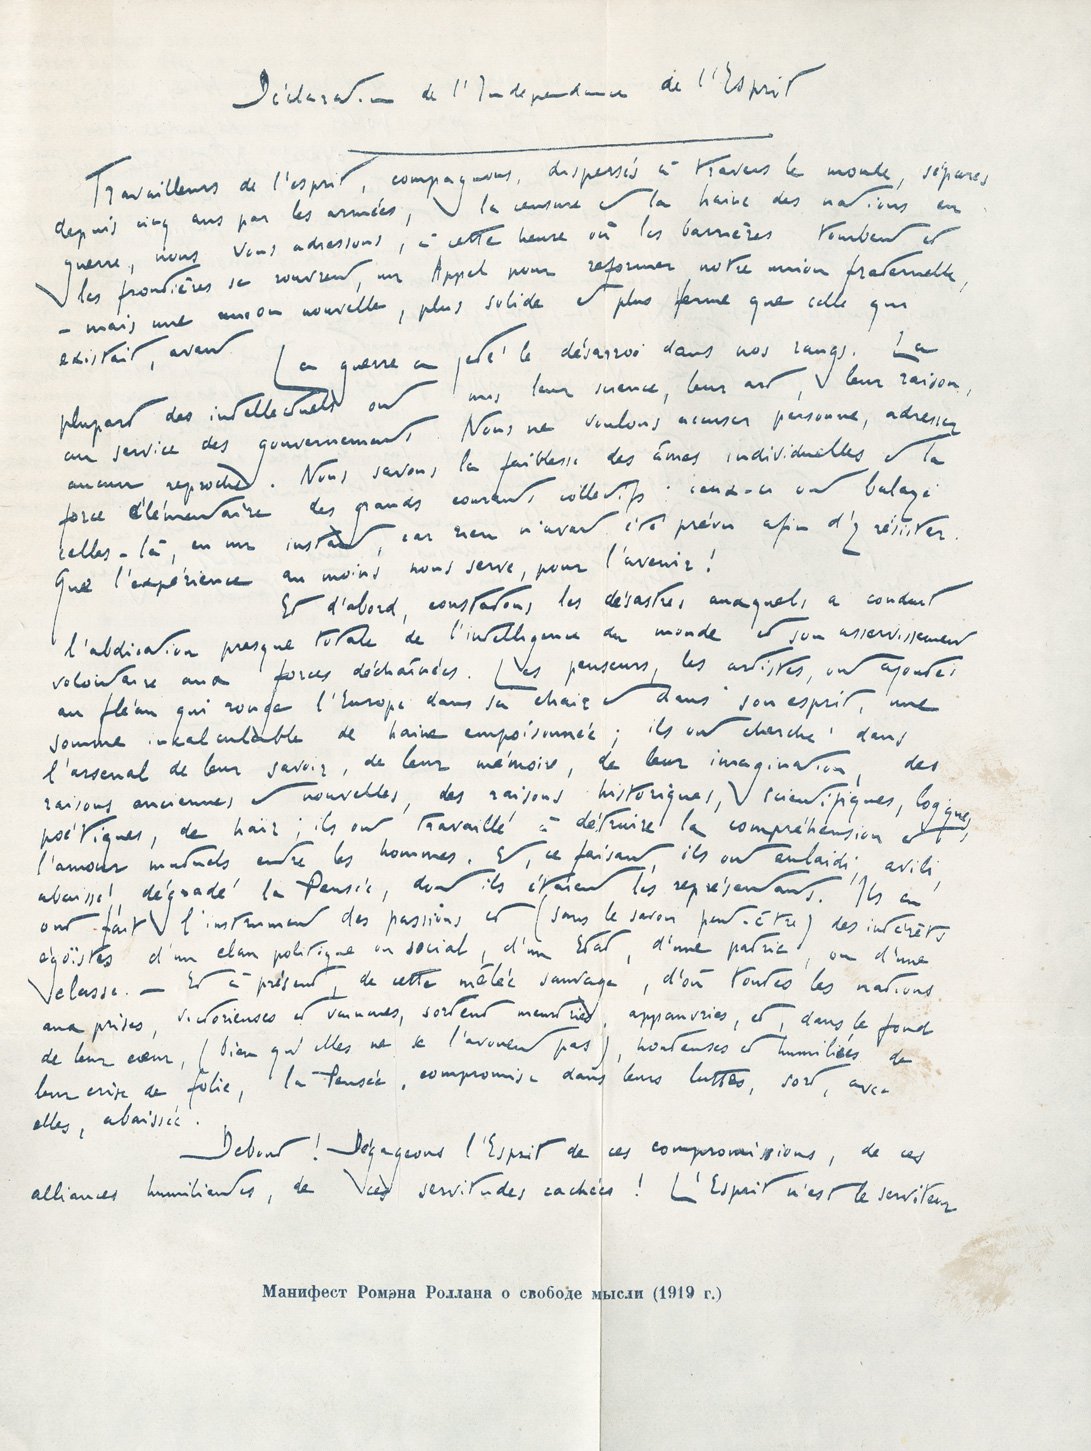 Déclaration de l'Indépendance de l'Esprit
Travailleurs de l'esprit, compagnons, dispersés à travers le monde, séparés
depuis cinq ans par les armées, la censure et la haine des nations en
guerre, nous vous adressons, à cette heure où les barrières tombent et
les frontières se rouvrent, un Appel pour reformer notre union fraternelle,
– mais une union nouvelle, plus solide et plus ferme que celle qui
existait, avant
La guerre a jeté le désarroi dans nos rangs. La
plupart des intellectuels ont mis leur science, leur art, leur raison,
au service des gouvernements. Nous ne voulons accuser personne, adresser
aucun reproche. Nous savons la faiblesse des âmes individuelles et la
force élémentaire des grands courants collectifs : ceux-ci ont balayé
celles-là, en un instant, car rien n'avait été prévu afin d'y résister.
Que l'expérience au moins nous serve, pour l'avenir !
Et d'abord, constatons les désastres auxquels a conduit
l'abdication presque totale de l'intelligence du monde et son asservissement
volontaire aux forces déchaînées. Les penseurs, les artistes, ont ajouté
au fléau qui ronge l'Europe dans sa chair et dans son esprit, une
somme incalculable de haine empoisonnée ; ils ont cherché dans
l'arsenal de leur savoir, de leur mémoire, de leur imagination, des
raisons anciennes et nouvelles, des raisons historiques, scientifiques, logiques,
poétiques, de haïr ; ils ont travaillé à détruire la compréhension et
l'amour mutuels entre les hommes. Et, ce faisant, ils ont enlaidi, avili,
abaissé, dégradé la Pensée, dont ils étaient les représentants. Ils en
ont fait l'instrument des passions et (sans le savoir peut-être) des intérêts
égoïstes d'un clan politique ou social, d'un État, d'une patrie, ou d'une
classe. – Et à présent, de cette mêlée sauvage, d'où toutes les nations
aux prises, victorieuses et vaincues, sortent meurtries, appauvries, et, dans le fond
de leur cœur, (bien qu'elles ne se l'avouent pas), honteuses et humiliées de
leur crise de folie, la Pensée, compromise dans leurs luttes, sort, avec
elles, abaissée.
Debout ! Dégageons l'Esprit de ces compromissions, de ces
alliances humiliantes, de ces servitudes cachées ! L'Esprit n'est le serviteur
Манифест Ромэна Роллана о свободе мысли (1919 г.)